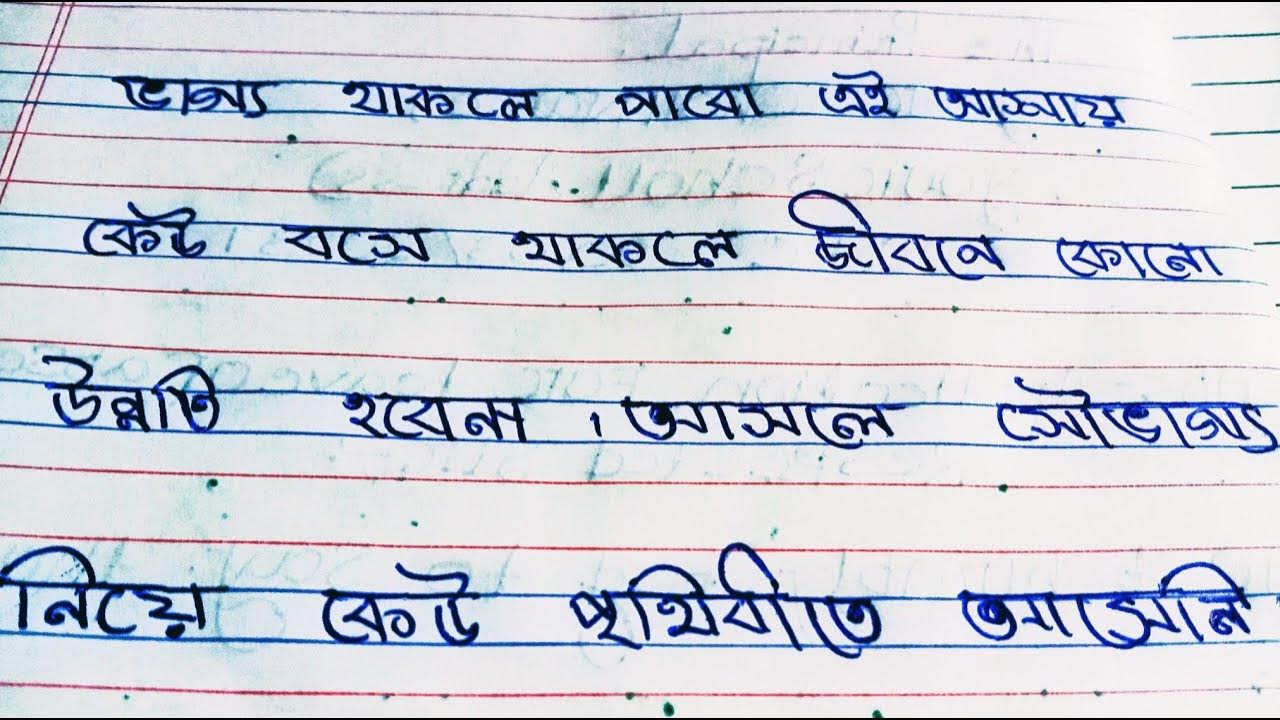 ভাগ্য থাকলে পাবো এই আশায়
কেউ বসে থাকলে জীবনে কোনো
উন্নতি হবেনা । আসলে সৌভাগ্য
নিয়ে কেউ পৃথিবীতে আসেনি